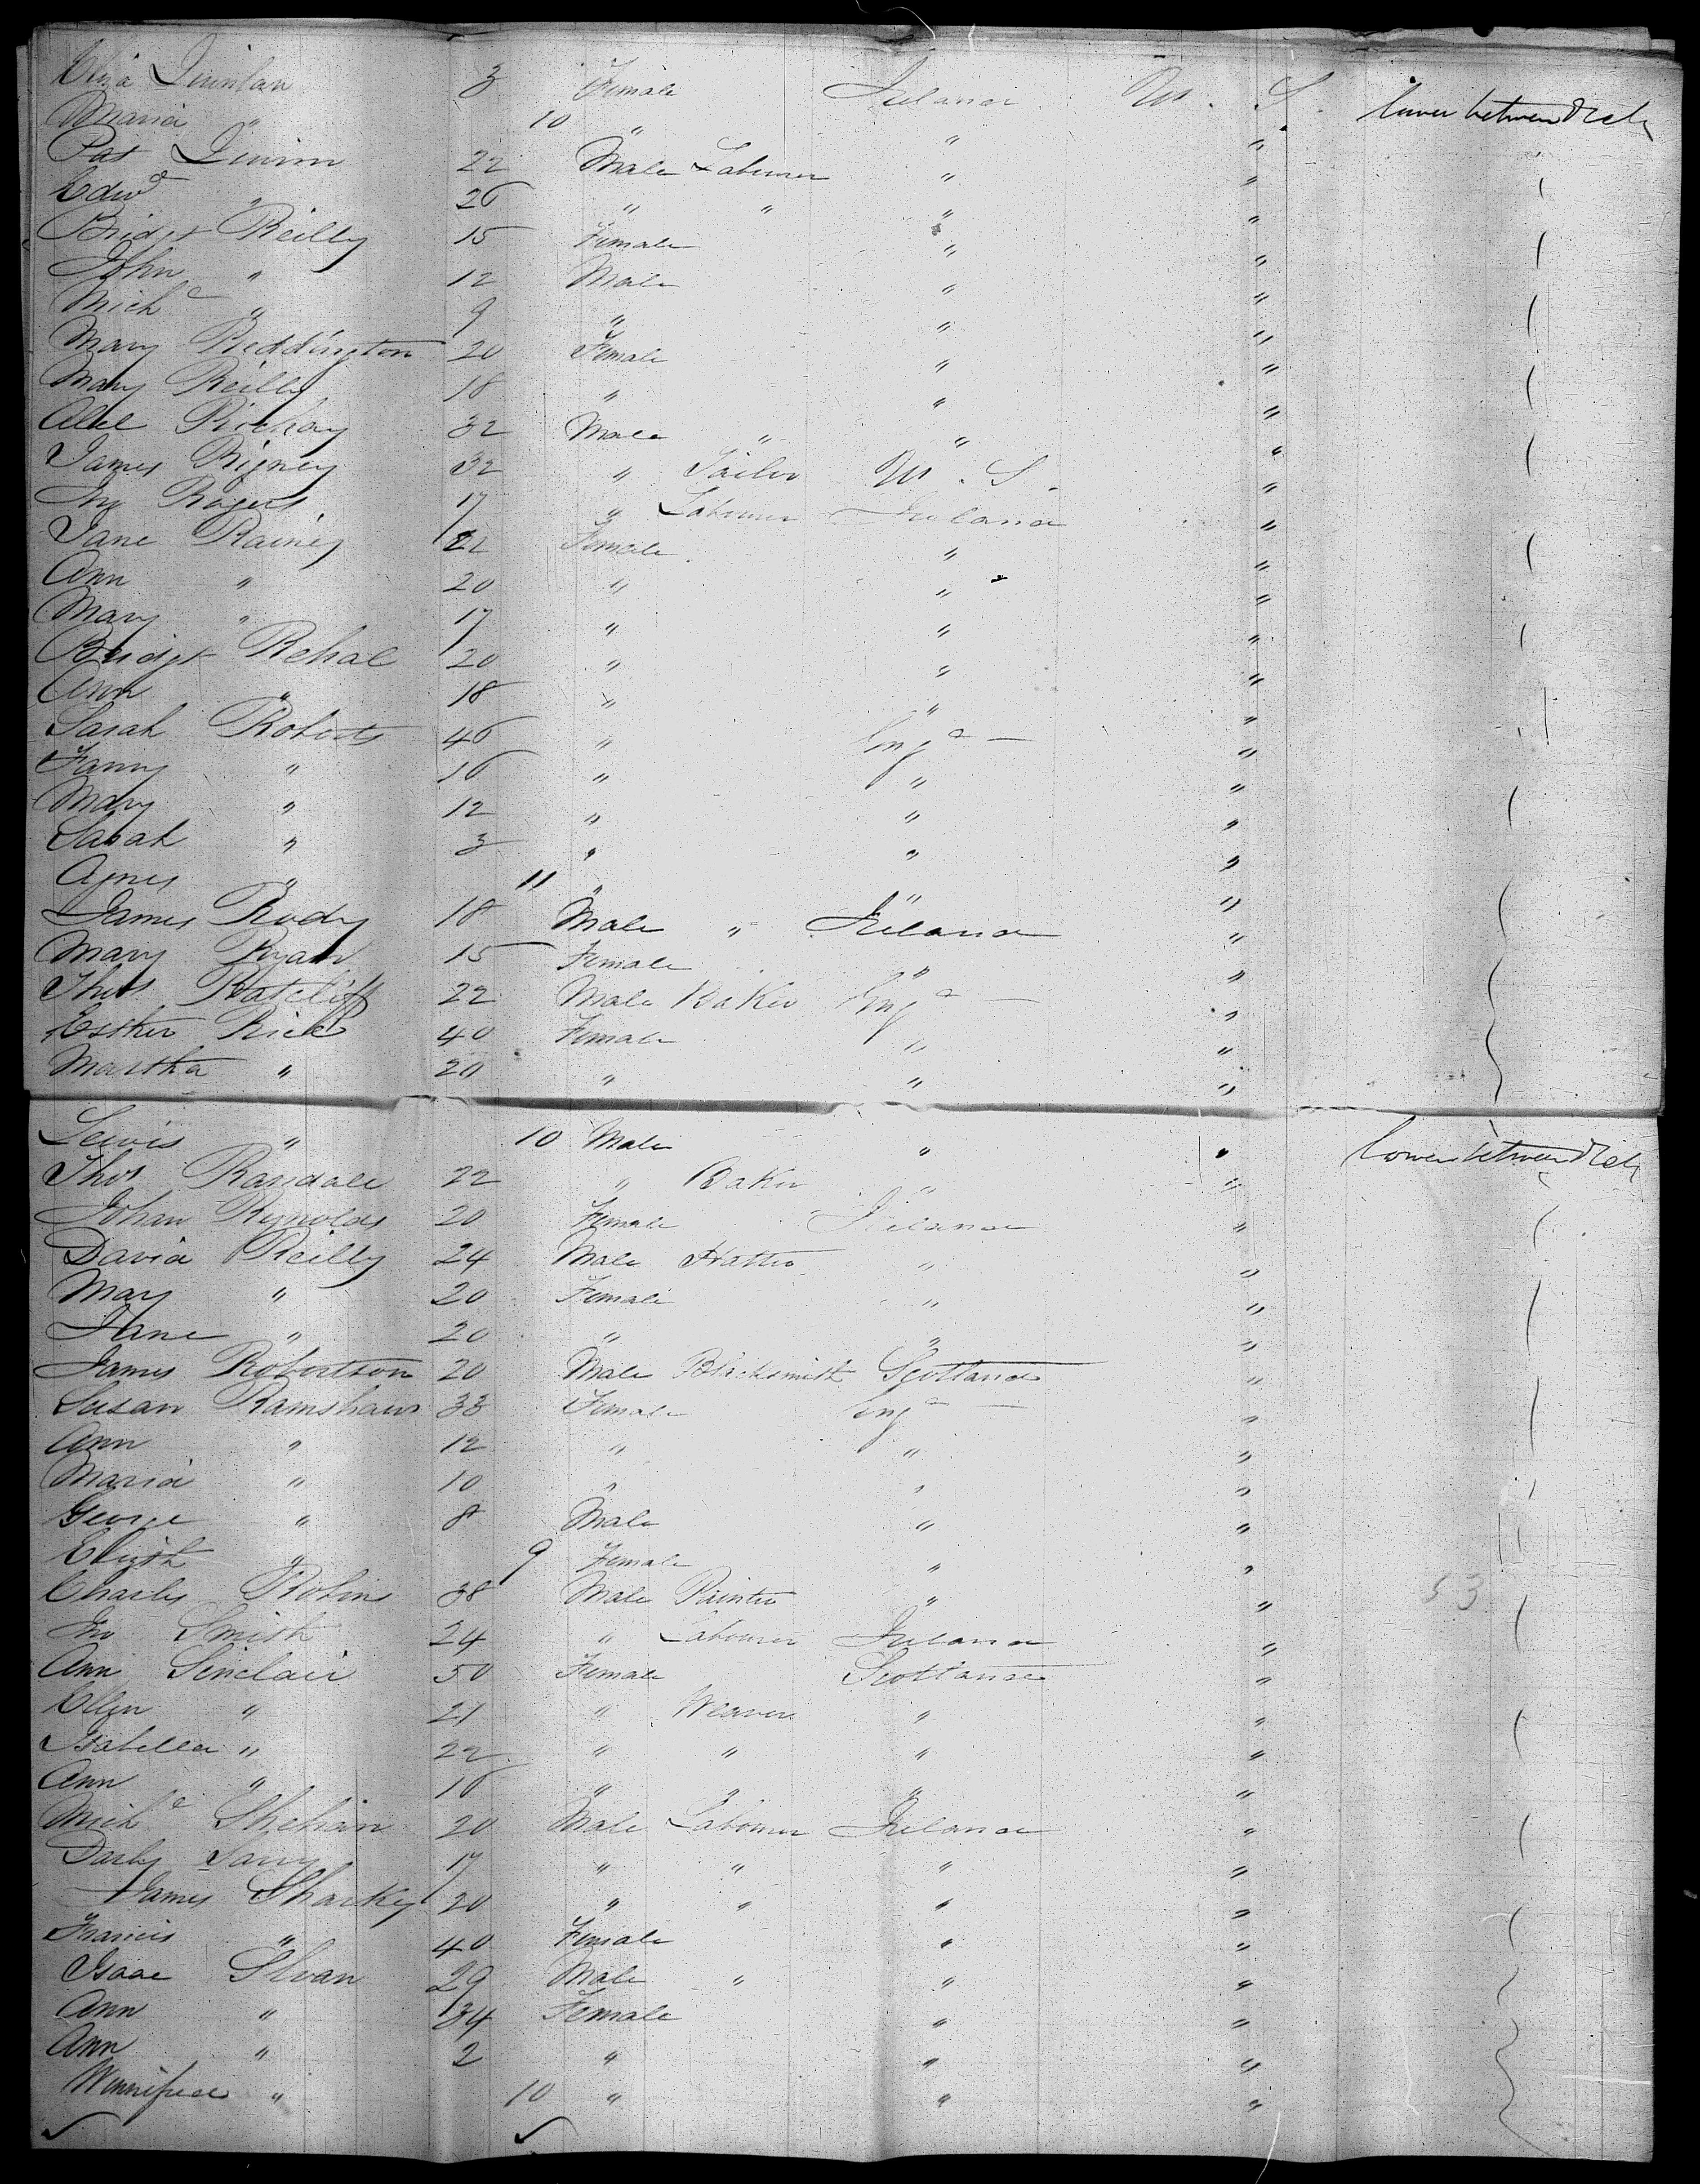 Eliza Quinlan 3 Female Ireland U. S. lower between Deck
Maria " 10 " " "
Pat Quinn 22 Male Labourer " "
Edwd " 26 " " " "
Bridget Reilly 15 Female " "
John " 12 Male " "
Michl " 9 " " "
Mary Reddington 20 Female " "
Mary Reilly 18 " " "
32 Male " " "
James Rigney 32 " Tailor U. S. "
Jno Rogers 17 " Labourer Ireland "
Jane Rainey 22 Female " "
Ann " 20 " " "
Mary " 17 " " "
Bridget Rehal 20 " " "
Ann " 18 " " "
Sarah Roberts 46 " Engd "
Fanny " 16 " " "
Mary " 12 " " "
Sarah " 3 " " "
Agnes " 11 " " "
James Rody 18 Male " Ireland "
Mary Ryan 15 Female " "
Thos Ratcliff 22 Male Baker Engd "
Esther Rice 40 Female " "
Martha " 20 " " "
Lewis " 10 Male " " lower between Deck
Thos Randall 22 " Baker " "
Johan Reynolds 20 Female Ireland "
David Reilly 24 Male Hatter " "
Mary " 20 Female " "
Jane " 20 " " "
James Robertson 20 Male Blacksmith Scotland "
Susan Ramshaw 33 Female Engd "
Ann " 12 " " "
Maria " 10 " " "
George " 8 Male " "
Elizth " 9 Female " "
Charles Robins 38 Male Painter " " 53
Jno Smith 24 " Labourer Ireland "
Ann Sinclair 50 Female Scotland "
Ellen " 21 " Weaver " "
Isabella " 22 " " " "
Ann " 16 " " " "
Michl Shehan 20 Male Labourer Ireland "
Darby 17 " " " "
James Sharkey 20 " " " "
Francis " 40 Female " "
Isaac Sloan 29 Male " " "
Ann " 34 Female " "
Ann " 2 " " "
Winnifred " 10 " " "